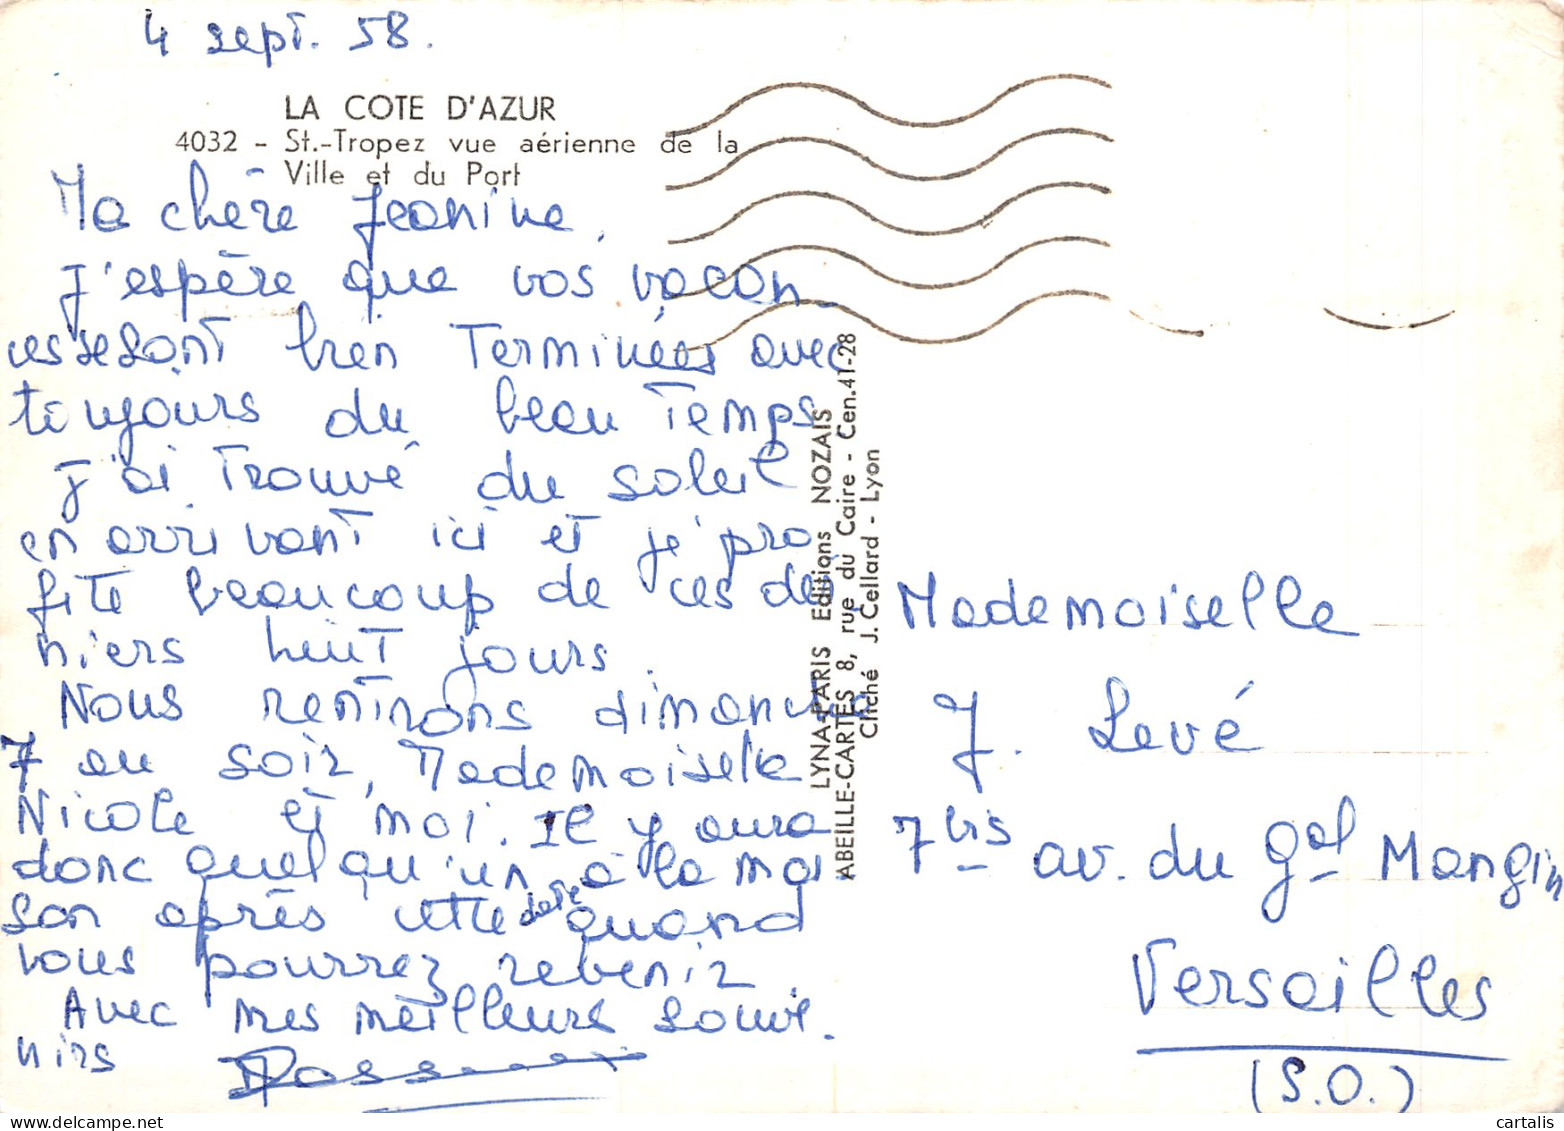 4 sept. 58.
LA COTE D'AZUR
4032 - St.-Tropez vue aérienne de la
Ville et du Port
Ma chère Jeanine,
J'espère que vos vacan-
ces se sont bien terminées avec
toujours du beau temps
J'ai trouvé du soleil
en arrivant ici et j'pro
fite beaucoup de ces der
niers huit jours.
Nous rentrons dimanche
7 au soir, Mademoiselle
Nicole et moi. Il y aura
donc quelqu'un à la mai
son après cette date quand
vous pourrez revenir.
Avec mes meilleurs souve-
nirs
LYNA-PARIS Editions NOZAIS
ABEILLE-CARTES 8, rue du Caire - Cen.41-28
Cliché J. Cellard - Lyon
Mademoiselle
J. Levé
7 bis av. du Gal Mangin
Versailles
(S.O.)
cartalis